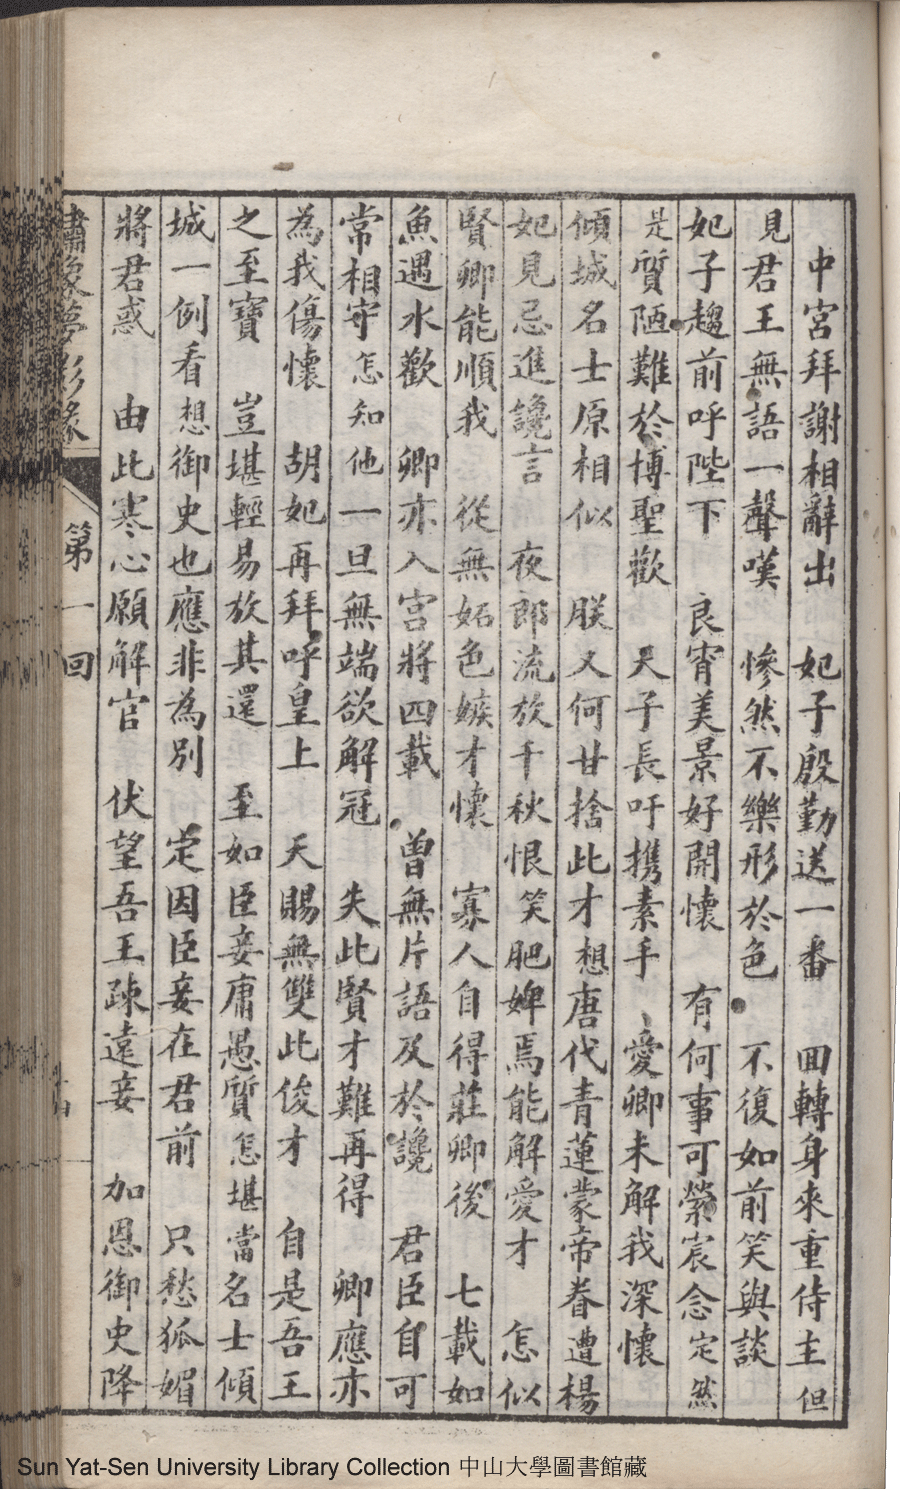 中宮拜謝相辭出　妃子殷勤送一番　回轉身來重侍主　但
見君王無語一聲嘆　慘然不樂形於色　不復如前笑與談
妃子趨前呼陛下　良宵美景好開懷　有何事可縈宸念定然
是質陋難於博聖歡　天子長吁攜素手　愛卿未解我深懷
傾城名士原相似　朕又何甘捨此才想唐代青蓮蒙帝眷遭楊
妃見忌進讒言　夜郎流放千秋恨笑肥婢焉能解愛才　怎似
賢卿能順我　從無妬色嫉才懷　寡人自得莊卿後　七載如
魚遇水歡　卿亦入宮將四載　曾無片語及於讒　君臣自可
常相守怎知他一旦無端欲解冠　失此賢才難再得　卿應亦
為我傷懷　胡妃再拜呼皇上　天賜無雙此俊才　自是吾王
之至寶　豈堪輕易放其還　至如臣妾庸愚質怎堪當名士傾
城一例看想御史也應非為別　定因臣妾在君前　只愁狐媚
將君惑　由此寒心願解官　伏望吾王疎遠妾　加恩御史降
夢影緣
第一回
Sun Yat-Sen University Library Collection 中山大學圖書館藏